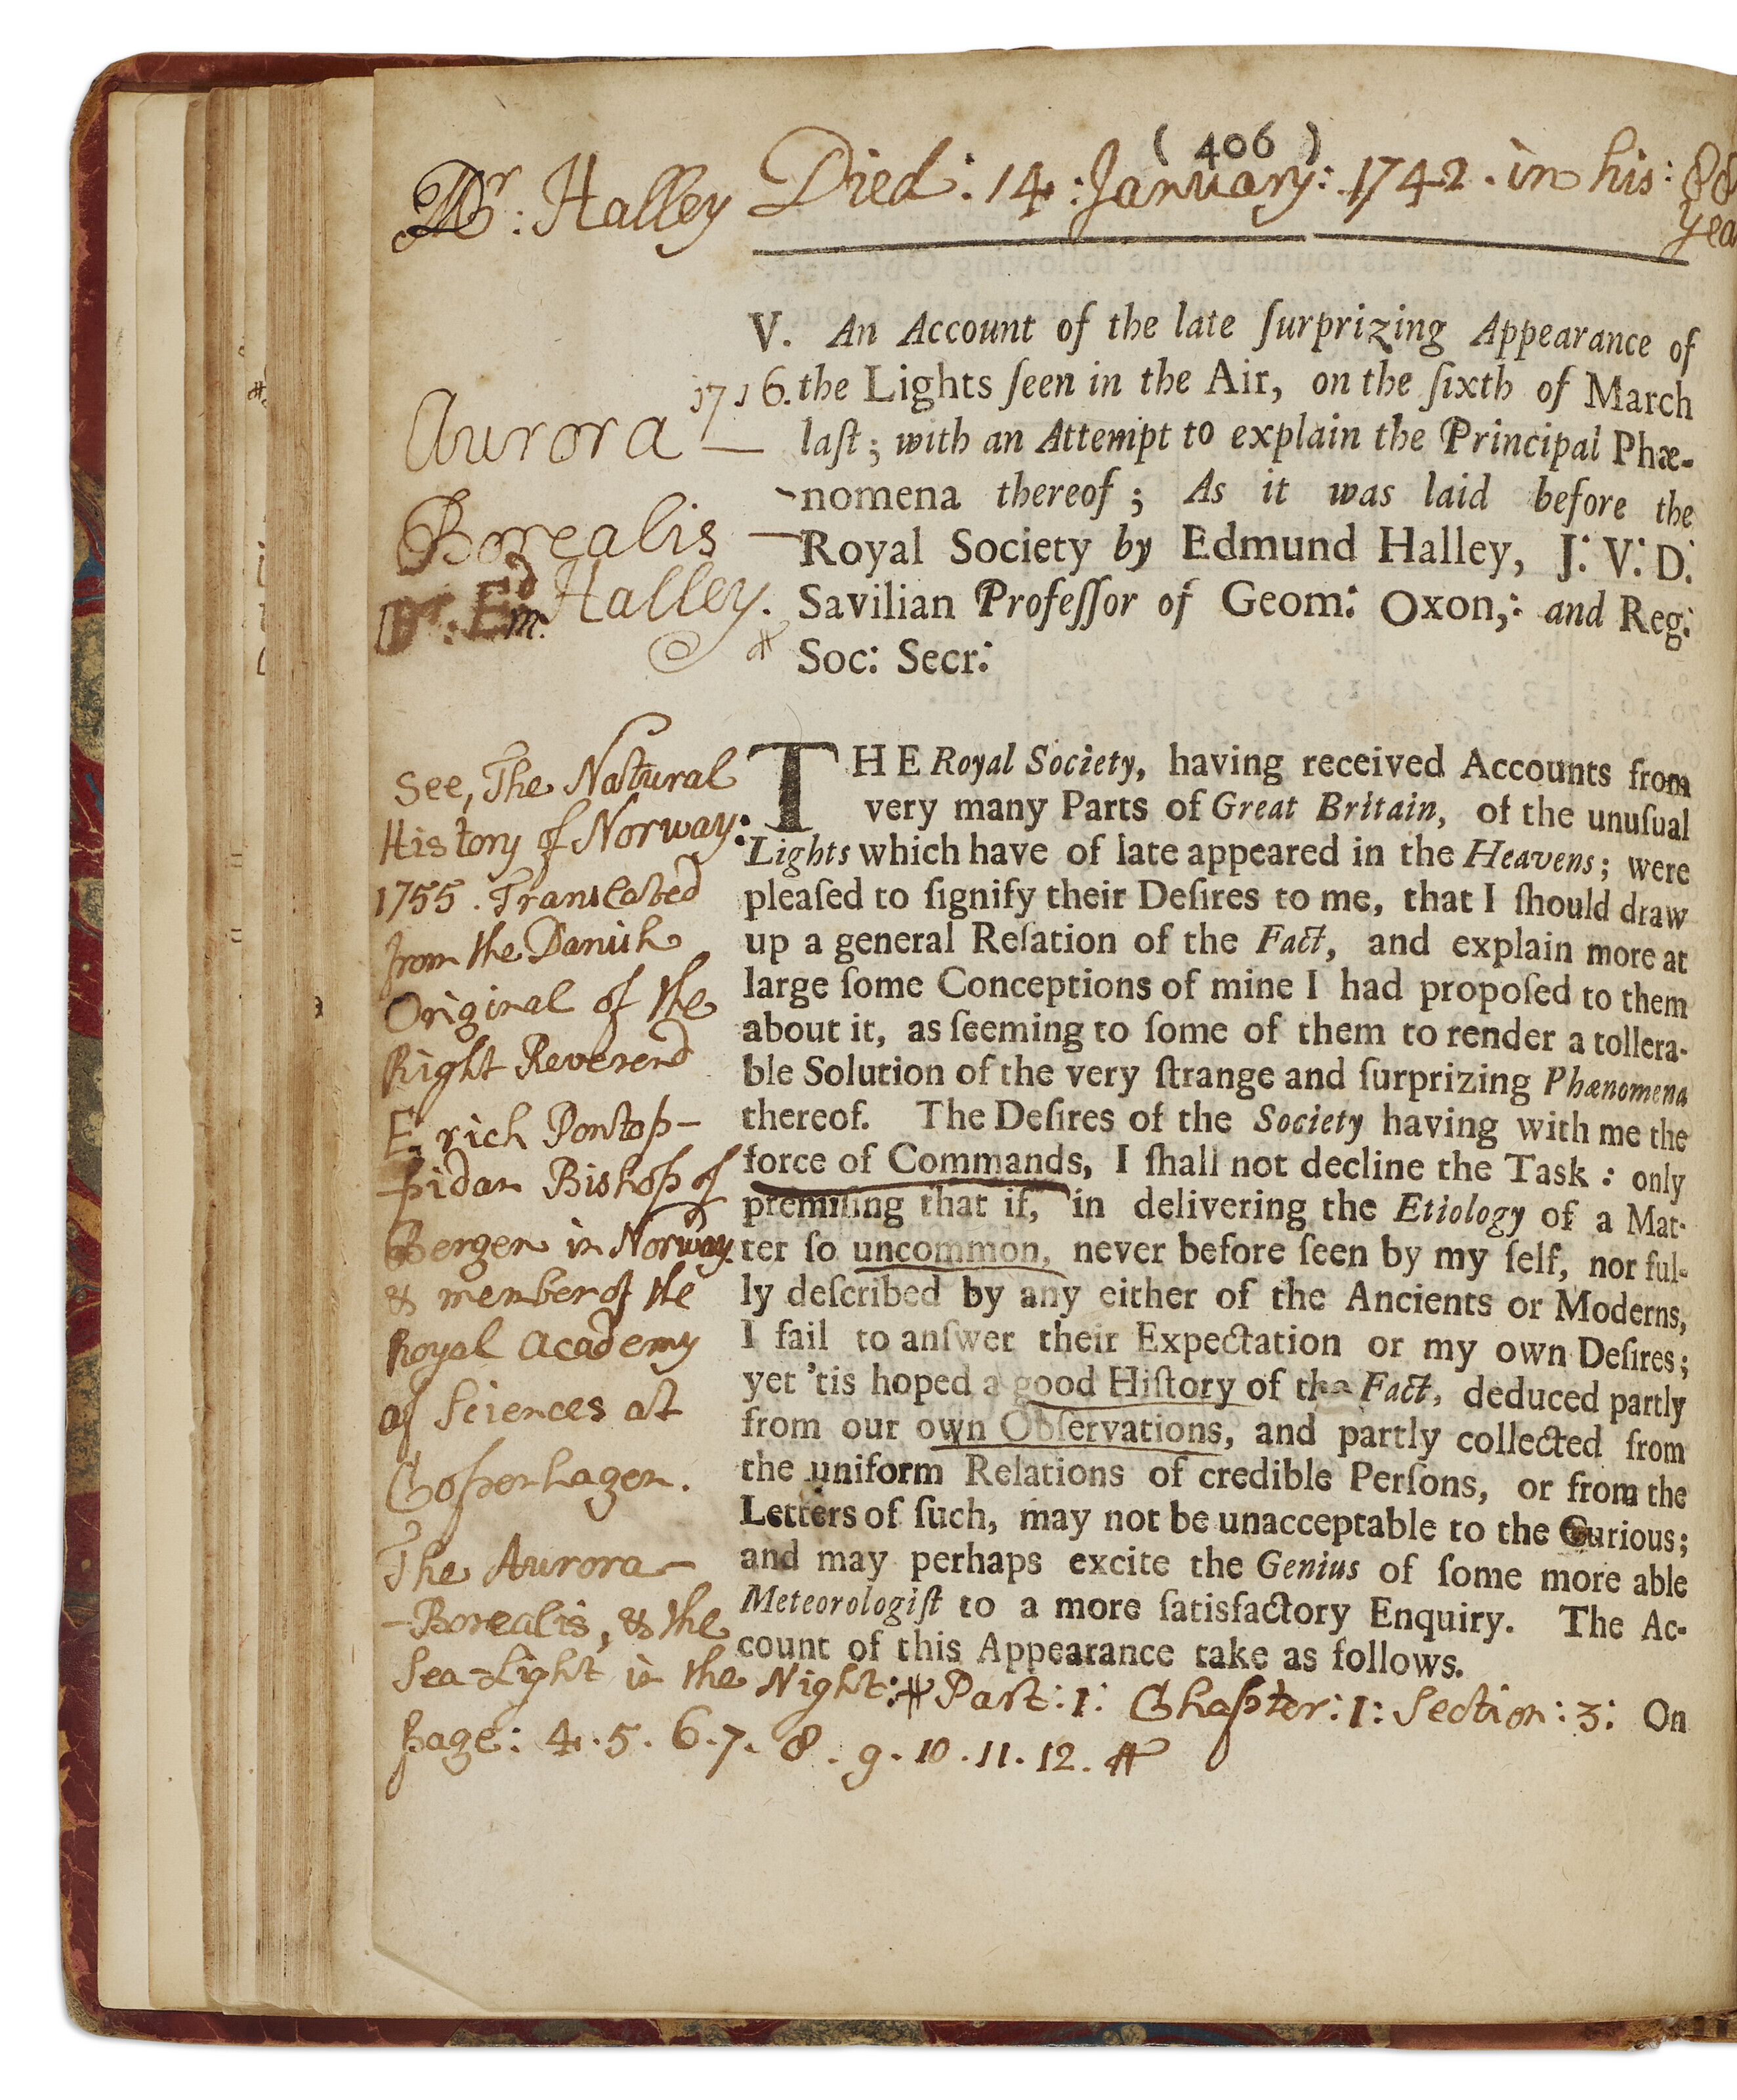 ( 406 )
Dr: Halley Died: 14: January: 1742. in his: 88
yea
V. An Account of the late ſurprizing Appearance of
1716. the Lights ſeen in the Air, on the ſixth of March
Aurora — laſt; with an Attempt to explain the Principal Phæ-
nomena thereof; As it was laid before the
Borealis — Royal Society by Edmund Halley, J. V. D.
Dr. Edm. Halley. Savilian Profeſſor of Geom: Oxon,: and Reg:
Soc: Secr:
See, The Natural
History of Norway:
1755. Translated
from the Danish
Original of the
Right Reverend
Erich Pontop-
-pidan Bishop of
Bergen in Norway.
& member of the
Royal Academy
of Sciences at
Copenhagen.
The Aurora-
-Borealis, & the
Sea-Light in the Night: Part: 1: Chapter: 1: Section: 3:
page: 4. 5. 6. 7. 8. 9. 10. 11. 12.
THE Royal Society, having received Accounts from
very many Parts of Great Britain, of the unuſual
Lights which have of late appeared in the Heavens; were
pleaſed to ſignify their Deſires to me, that I ſhould draw
up a general Reſation of the Fact, and explain more at
large ſome Conceptions of mine I had propoſed to them
about it, as ſeeming to ſome of them to render a tollera-
ble Solution of the very ſtrange and ſurprizing Phænomena
thereof. The Deſires of the Society having with me the
force of Commands, I ſhall not decline the Task: only
premiſing that if, in delivering the Etiology of a Mat-
ter ſo uncommon, never before ſeen by my ſelf, nor ful-
ly deſcribed by any either of the Ancients or Moderns,
I fail to anſwer their Expectation or my own Deſires;
yet 'tis hoped a good Hiſtory of the Fact, deduced partly
from our own Obſervations, and partly collected from
the uniform Relations of credible Perſons, or from the
Letters of ſuch, may not be unacceptable to the Curious;
and may perhaps excite the Genius of ſome more able
Meteorologiſt to a more ſatisfactory Enquiry. The Ac-
count of this Appearance take as follows.
On